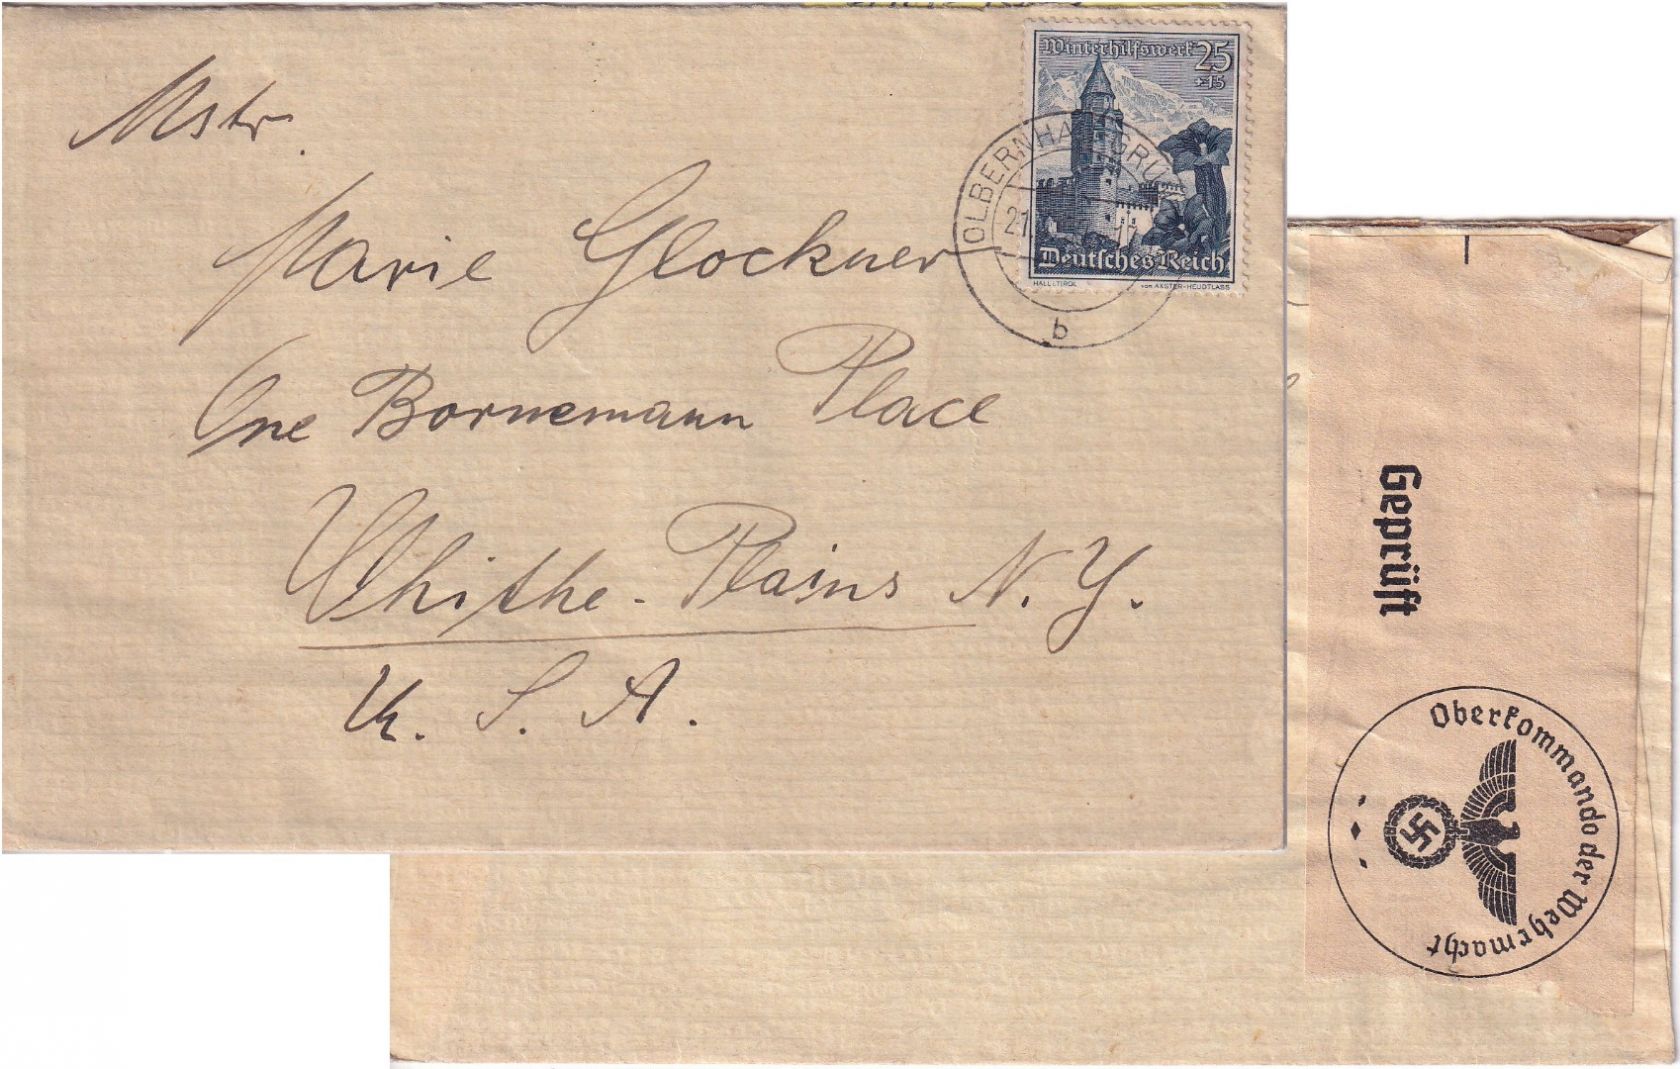 Mstr.
Marie Glockner
One Bornemann Place
Whithe-Plains N.Y.
U.S.A.
Winterhilfswerk 25
+15
Deutsches Reich
HALL i. TIROL von AXSTER-HEUDTLASS
OLBERNHAU GRÜ
21
b
Geprüft
Oberkommando der Wehrmacht